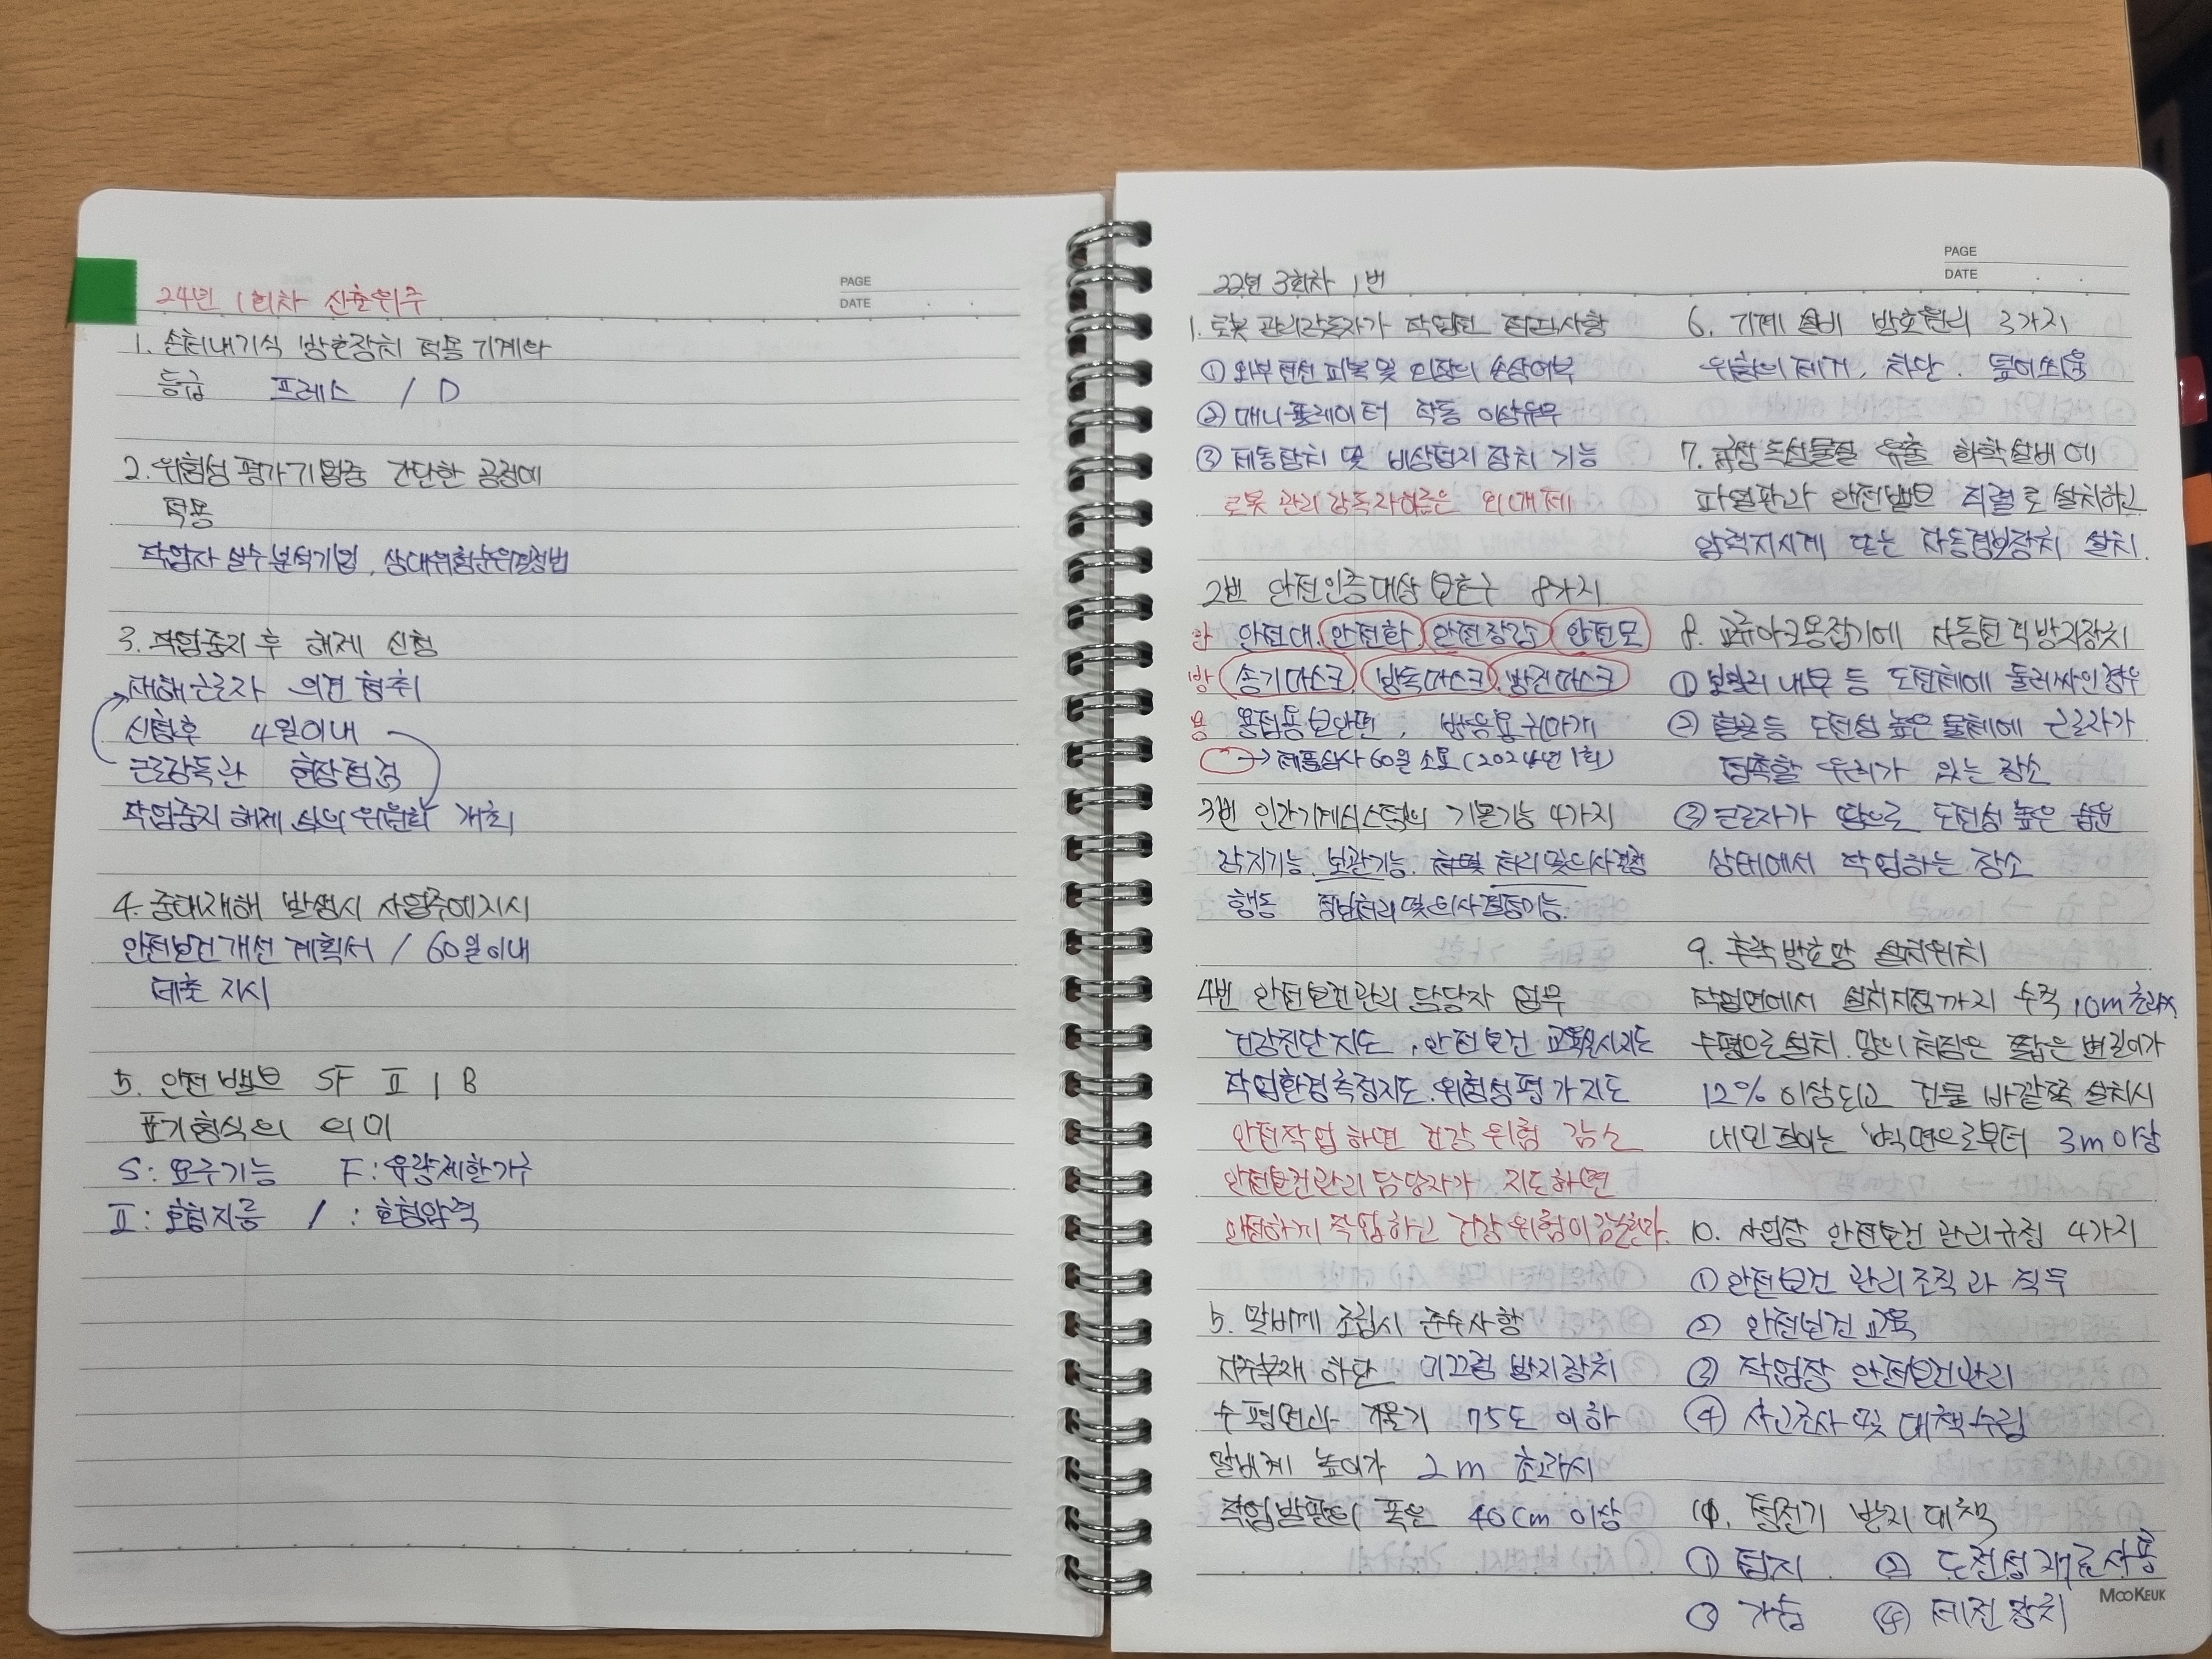 PAGE
DATE
24년 1회차 신출위주
1. 손쳐내기식 방호장치 적용 기계와
등급 프레스 / D
2. 위험성 평가기법중 간단한 공정에
적용
작업자 실수분석기법, 상대위험순위결정법
3. 작업중지 후 해제 신청
재해근로자 의견 청취
신청후 4일이내
근로감독관 현장점검
작업중지 해제 심의 위원회 개최
4. 중대재해 발생시 사업주에지시
안전보건개선 계획서 / 60일이내
제출 지시
5. 안전밸브 SF II 1 B
표기형식의 의미
S: 요구기능 F: 유량제한기구
II: 호칭지름 1: 호칭압력
PAGE
DATE
22년 3회차 1번
1. 로봇 관리감독자가 작업전 점검사항
① 외부전선 피복 및 외장의 손상여부
② 매니퓰레이터 작동 이상유무
③ 제동장치 및 비상정지 장치 기능
로봇 관리 감독자이름은 외매제
2번 안전인증대상 보호구 8가지
안전대, 안전화, 안전장갑, 안전모
방 송기마스크, 방독마스크, 방진마스크
용 용접용보안면, 방음용 귀마개
→ 제품심사 60일 소요 (2024년 1회)
3번 인간기계시스템의 기본기능 4가지
감지기능, 보관기능, 처리 및 의사결정
행동 정보처리 및 의사결정기능.
4번 안전보건관리 담당자 업무
건강진단지도, 안전보건 교육실시지도
작업환경측정지도, 위험성평가지도
안전작업 하면 건강 위험 감소
안전보건관리 담당자가 지도하면
안전하게 작업하고 건강 위험이 감소한다.
5. 말비계 조립시 준수사항
지주부재 하단 미끄럼 방지장치
수평면과 기울기 75도 이하
말비계 높이가 2m 초과시
작업발판의 폭은 40cm 이상
6. 기계 설비 방호원리 3가지
위험의 제거, 차단, 덮어씌움
7. 급성 독성물질 유출 화학설비에
파열판과 안전밸브 직렬로 설치하고
압력지시계 또는 자동경보장치 설치.
8. 교류아크용접기에 자동전격방지장치
① 보일러 내부 등 도전체에 둘러싸인 경우
② 철골등 도전성 높은 물체에 근로자가
접촉할 우려가 있는 장소
③ 근로자가 땀으로 도전성 높은 습윤
상태에서 작업하는 장소
9. 추락방호망 설치위치
작업면에서 설치지점까지 수직 10m 초과x
수평으로 설치. 망의 처짐은 짧은 변길이가
12% 이상되고 건물 바깥쪽 설치시
내민 길이는 벽면으로부터 3m 이상
10. 사업장 안전보건 관리규정 4가지
① 안전보건 관리조직과 직무
② 안전보건 교육
③ 작업장 안전보건관리
④ 사고조사 및 대책수립
11. 정전기 방지 대책
① 접지 ② 도전성 재료사용
③ 가습 ④ 제전장치
MOOKEUK